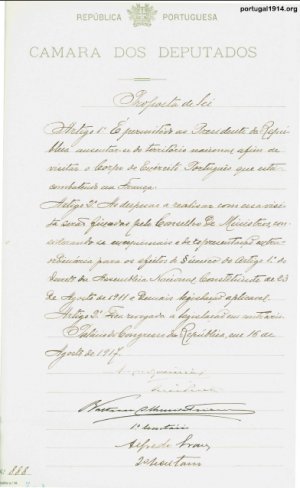 portugal1914.org
REPÚBLICA PORTUGUESA
CAMARA DOS DEPUTADOS
Proposta de Lei
Artigo 1º É permittido ao Presidente da Repú-
blica ausentar-se do territorio nacional afim de
visitar o Corpo do Exercito Português que está
combatendo na França.
Artigo 2º As despesas a realisar com essa visi-
ta serão fixadas pelo Conselho de Ministros, con-
siderando-se
e de representação extra-
ordinária para os efeitos do § unico do Artigo 1º do
decreto da Assembleia Nacional Constituinte de 23
de Agosto de 1911 e demais legislação aplicavel.
Artigo 3º Fica revogada a legislação em contrário.
Palacio do Congresso da República, em 16 de
Agosto de 1917.
1º Secretario
Alfredo
2º Secretario